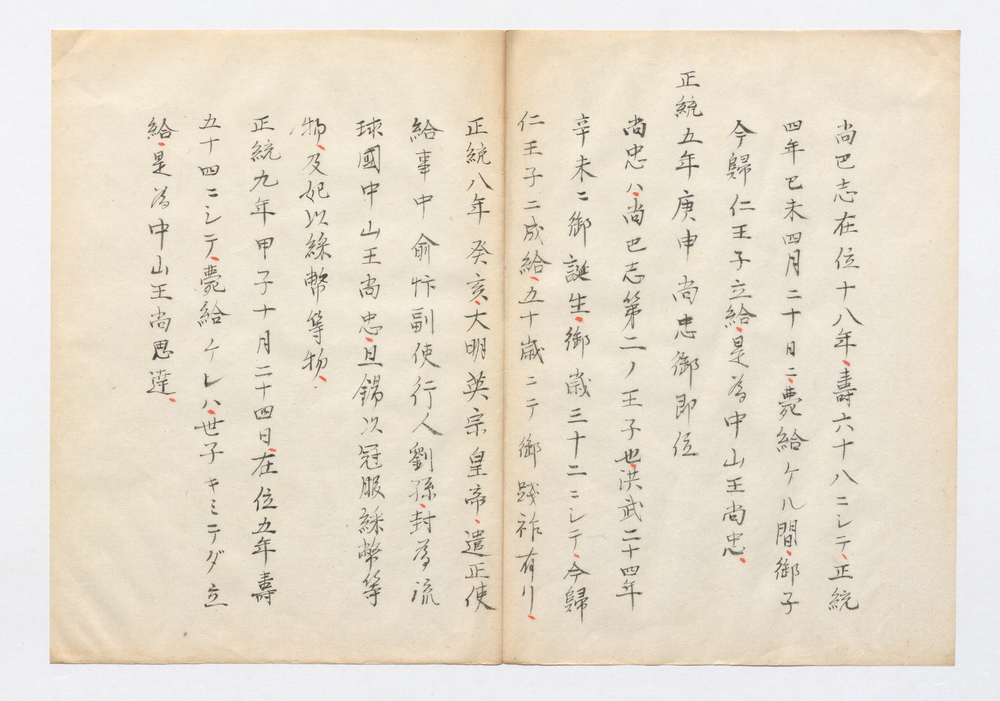 尚巴志在位十八年、壽六十八ニシテ、正統
四年巳未四月二十日ニ、薨給ケル間、御子
今歸仁王子立給、是為中山王尚忠、
正統五年庚申尚忠御即位
尚忠ハ、尚巴志第二ノ王子也、洪武二十四年
辛未ニ御誕生、御歳三十二ニシテ、今歸
仁王子ニ成給、五十歳ニテ御踐祚有リ、
正統八年癸亥、大明英宗皇帝、遣正使
給事中俞忭副使行人劉孫、封為流
球國中山王尚忠、且錫以冠服綵幣等
物、及妃以綵幣等物、
正統九年甲子十月二十四日、在位五年壽
五十四ニシテ、薨給ケレハ、世子キミテダ立
給、是為中山王尚思達、